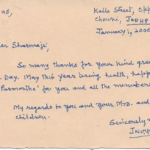 Kalla Street, Opp
Chowki,
January 1, 200
Sharmaji,
So many thanks for your kind gree
Day. May this year bring health, happ
for you and all the members
My regards to you and your Mrs. and
children.
Sincerely